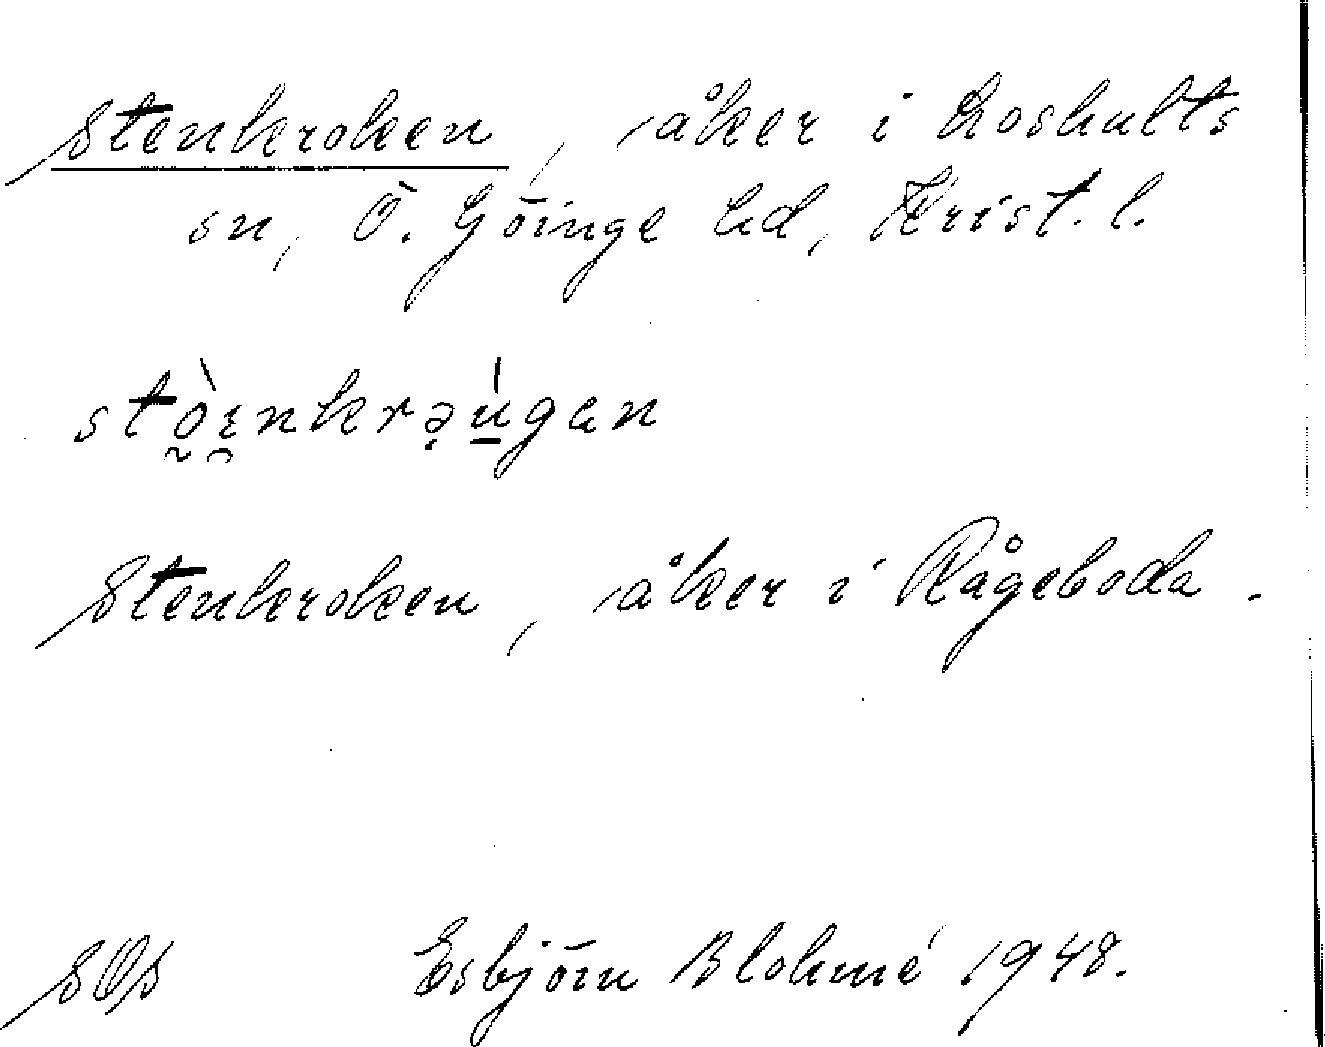 Stenkroken, åker i Loshults
sn, Ö. Göinge hd, Krist. l.
stò̰ɪ̯nkrə̣u̲̍gɐn
Stenkroken, åker i Rågeboda.
SOS Esbjörn Blohmé 1948.